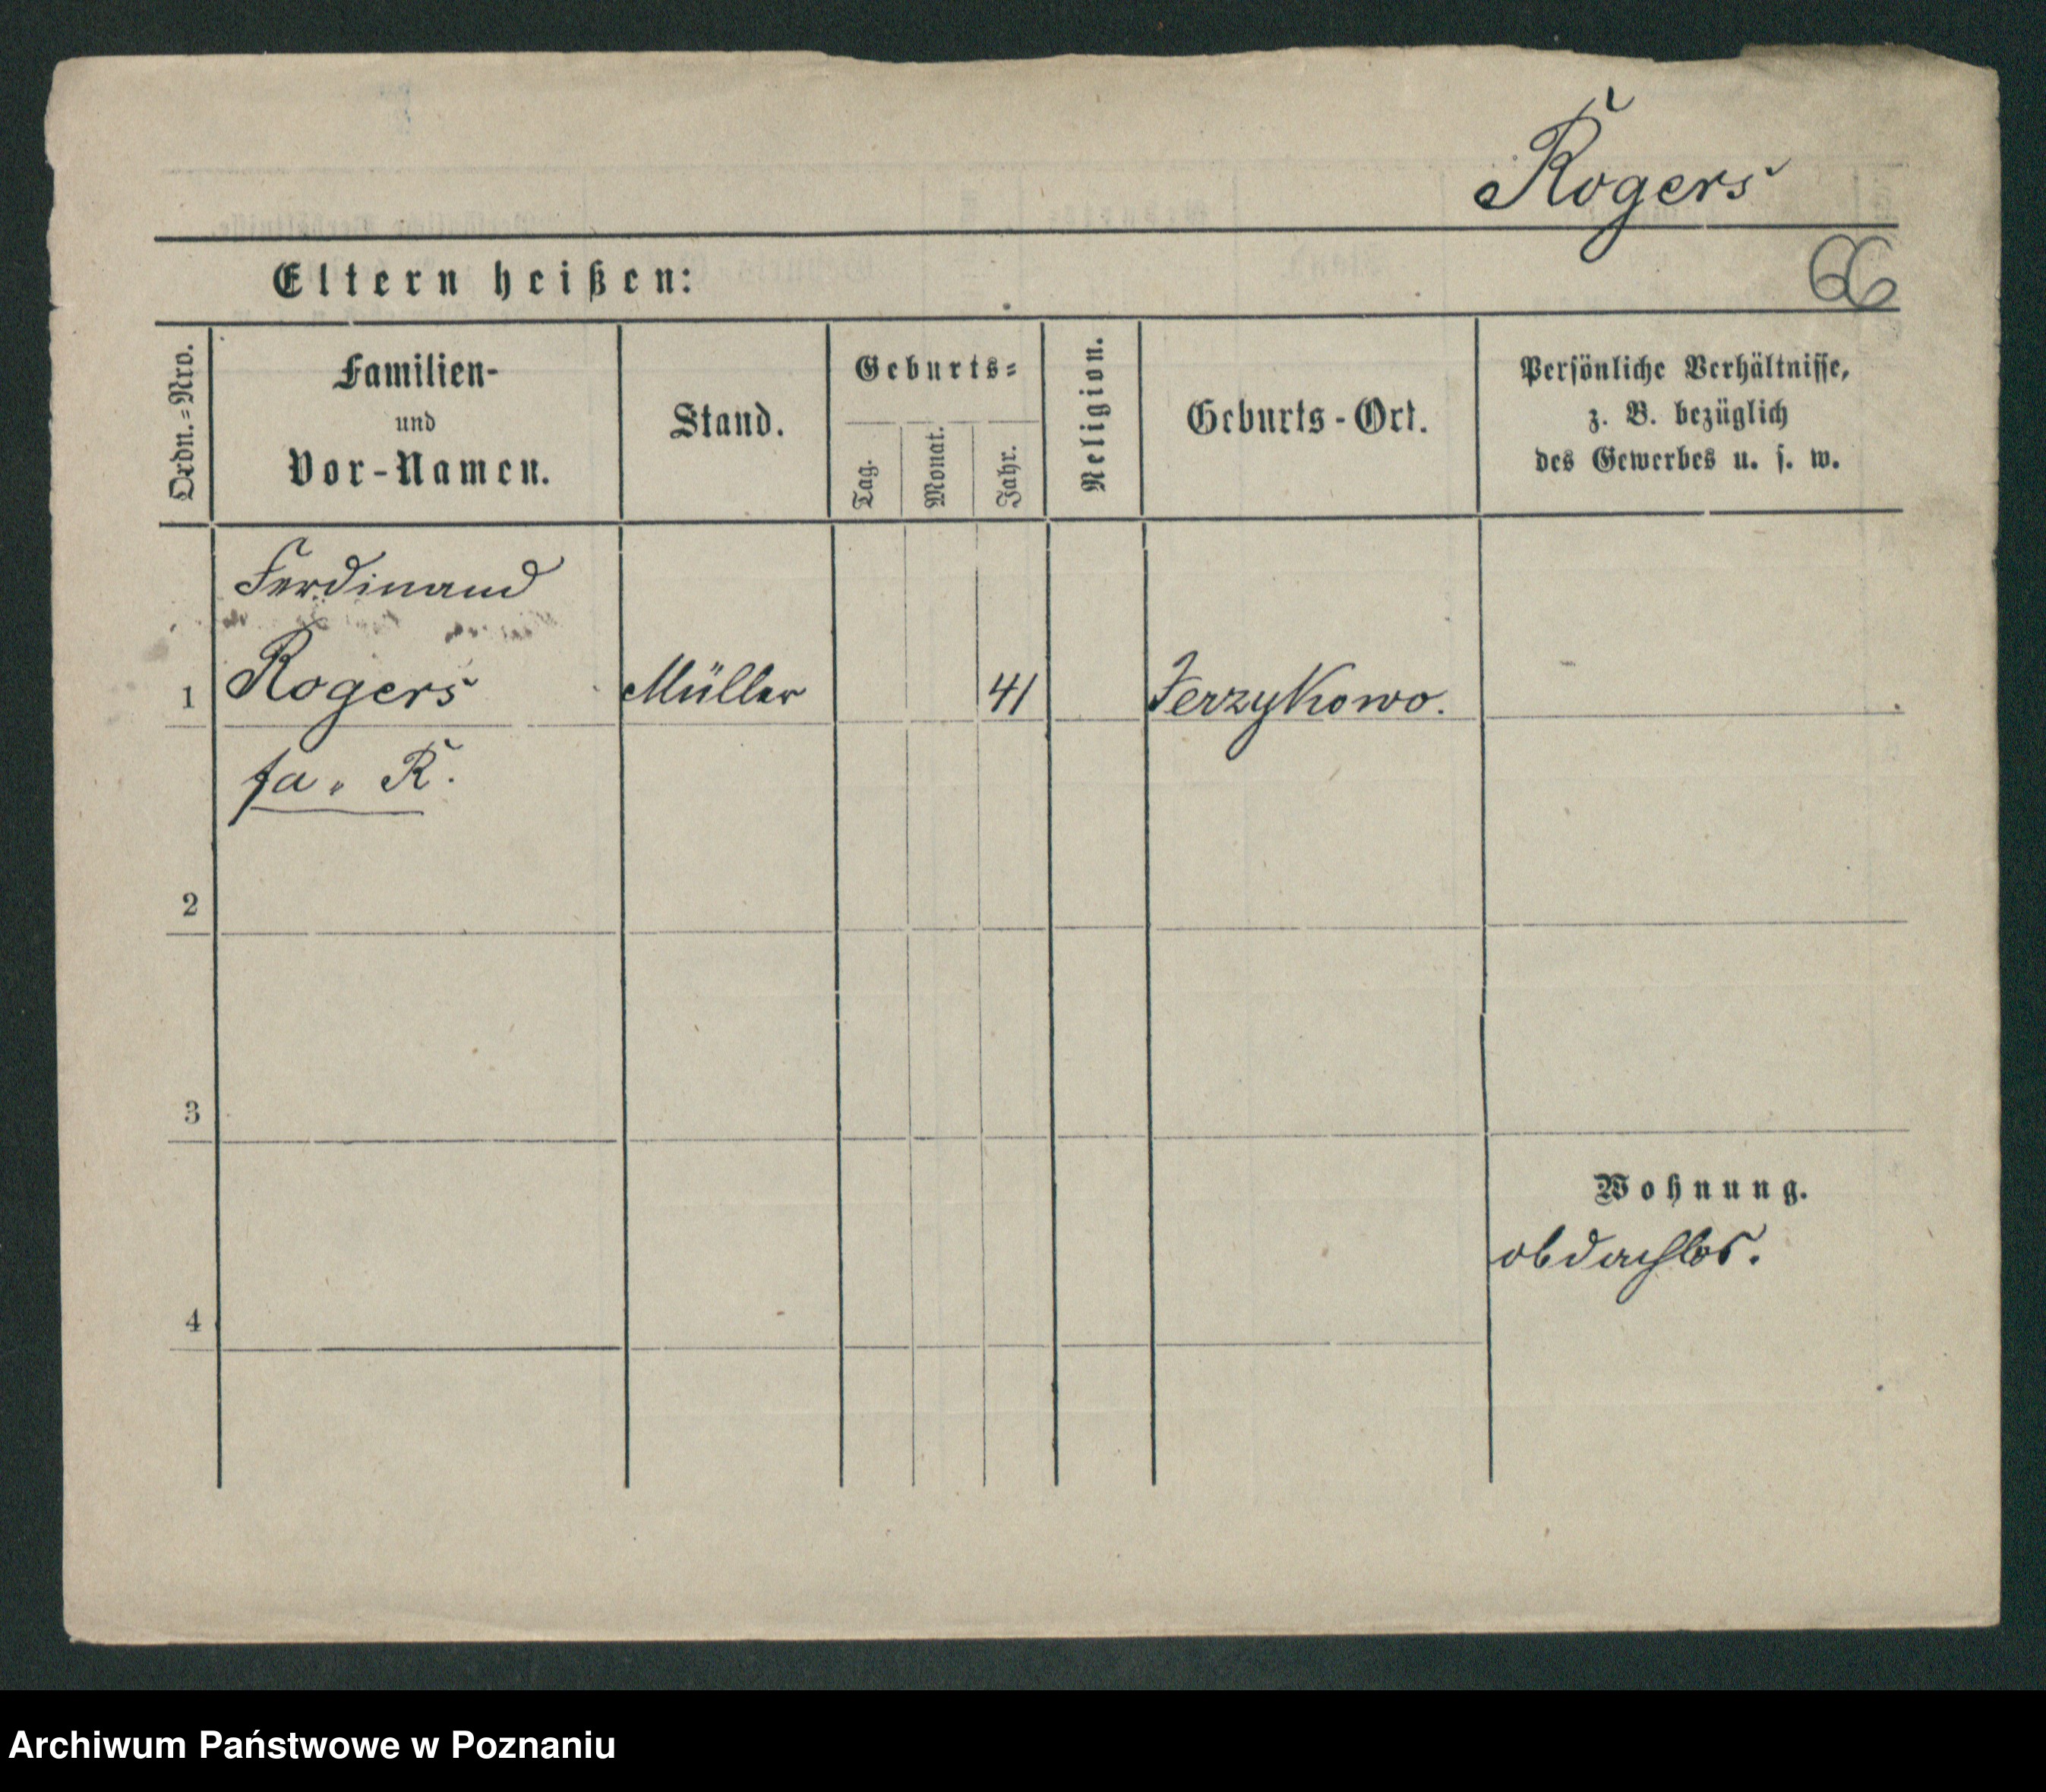 Rogers
66
Eltern heißen:
Ordn.=Nro.
Familien-
und
Vor-Namen.
Stand.
Geburts=
Tag.
Monat.
Jahr.
Religion.
Geburts-Ort.
Persönliche Verhältnisse,
z. B. bezüglich
des Gewerbes u. s. w.
Ferdinand
1 Rogers Müller 41 Jerzykowo.
fa. R.
2
3
Wohnung.
obdachlos.
4
Archiwum Państwowe w Poznaniu